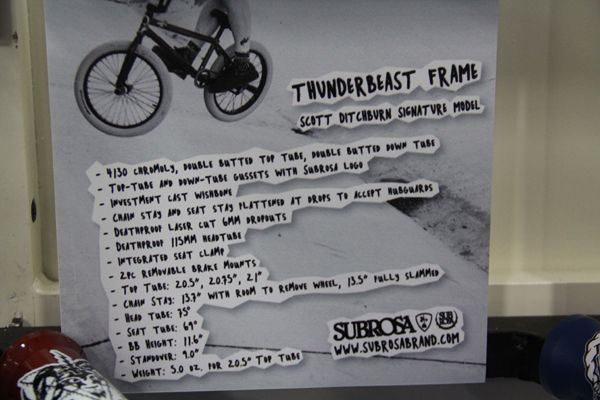 THUNDERBEAST FRAME
SCOTT DITCHBURN SIGNATURE MODEL
- 4130 CHROMOLY, DOUBLE BUTTED TOP TUBE, DOUBLE BUTTED DOWN TUBE
- TOP-TUBE AND DOWN-TUBE GUSSETS WITH SUBROSA LOGO
- INVESTMENT CAST WISHBONE
- CHAIN STAY AND SEAT STAY FLATTENED AT DROPS TO ACCEPT HUBGUARDS
- DEATHPROOF LASER CUT 6MM DROPOUTS
- DEATHPROOF 115MM HEADTUBE
- INTEGRATED SEAT CLAMP
- 2PC REMOVABLE BRAKE MOUNTS
- TOP TUBE: 20.5", 20.75", 21"
- CHAIN STAY: 13.7" WITH ROOM TO REMOVE WHEEL, 13.5" FULLY SLAMMED
- HEAD TUBE: 75°
- SEAT TUBE: 69°
- BB HEIGHT: 11.6"
- STANDOVER: 9.0"
- WEIGHT: 5.0 OZ. FOR 20.5" TOP TUBE
SUBROSA
WWW.SUBROSABRAND.COM